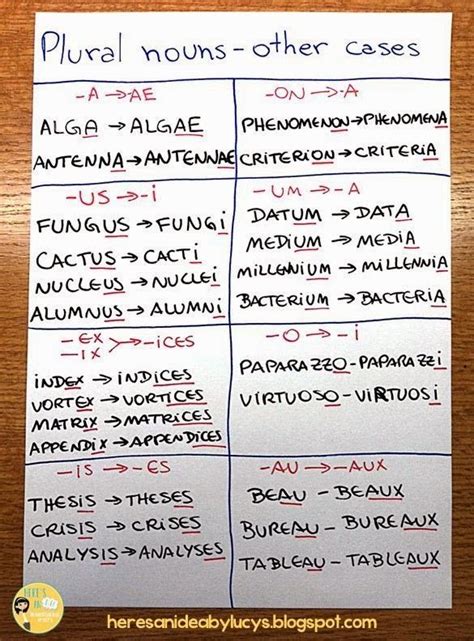 Plural nouns - other cases
-A → AE
ALGA → ALGAE
ANTENNA → ANTENNAE
-ON → -A
PHENOMENON → PHENOMENA
CRITERION → CRITERIA
-US → -i
FUNGUS → FUNGi
CACTUS → CACTi
NUCLEUS → NUCLEi
ALUMNUS → ALUMNi
-UM → -A
DATUM → DATA
MEDIUM → MEDIA
MiLLENNIUM → MiLLENNiA
BACTERIUM → BACTERIA
-EX
-IX > → -iCES
iNDEX → iNDICES
VORTEX → VORTICES
MATRIX → MATRICES
APPENDIX → APPENDICES
-O → -i
PAPARAZZO - PAPARAZZi
VIRTUOSO - VIRTUOSi
-iS → -ES
THESIS → THESES
CRISIS → CRISES
ANALYSIS → ANALYSES
-AU → -AUX
BEAU - BEAUX
BUREAU - BUREAUX
TABLEAU - TABLEAUX
HERE'S
heresanideabylucys.blogspot.com